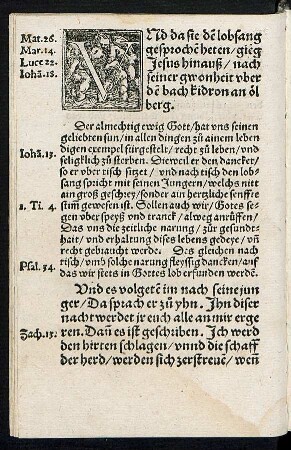 Mat.26.
Mar.14.
Luce 22.
Johã.18.
VNd da sie dẽ lobsang
gesprochẽ heten/gieg
Jesus hinauß/nach
seiner gwonheit vber
dẽ bach kidron an öl
berg.
Der almechtig ewig Gott/hat vns seinen
geliebten sun/in allen dingen zu ainem lebendi
gen exempel fürgestelt/recht zu leben/vnd
Johã.13.
seligklich zu sterben. Diewel er den dancket/
so er vber tisch sitzet/vnd nach tisch den lob=
sang spricht mit seinen Jungern/welchs nitt
an groß geschrey/sonder ain hertzliche senffte
1. Ti. 4.
stim̃ gewesen ist. Sollen auch wir/Gotes se=
gen vber speyß vnd tranck/alweg anrüffen/
Das vns die zeitliche narung/zur gesundt=
hait/vnd erhaltung dises lebens gedeye/vñ
recht gebraucht werde. Des gleichen nach
tisch/vmb solche narung fleyssig dancken/auf
Psal.34.
das wir stets in Gottes lob erfunden werdẽ.
Vnd es volgetẽ im nach seine jun
ger/Da sprach er zu yhn. Jhn diser
nacht werdet jr euch alle an mir erge
Zach.13.
ren. Dañ es ist geschriben. Ich werd
den hirten schlagen/vnnd die schaff
der herd/werden sich zerstreuẽ/weñ